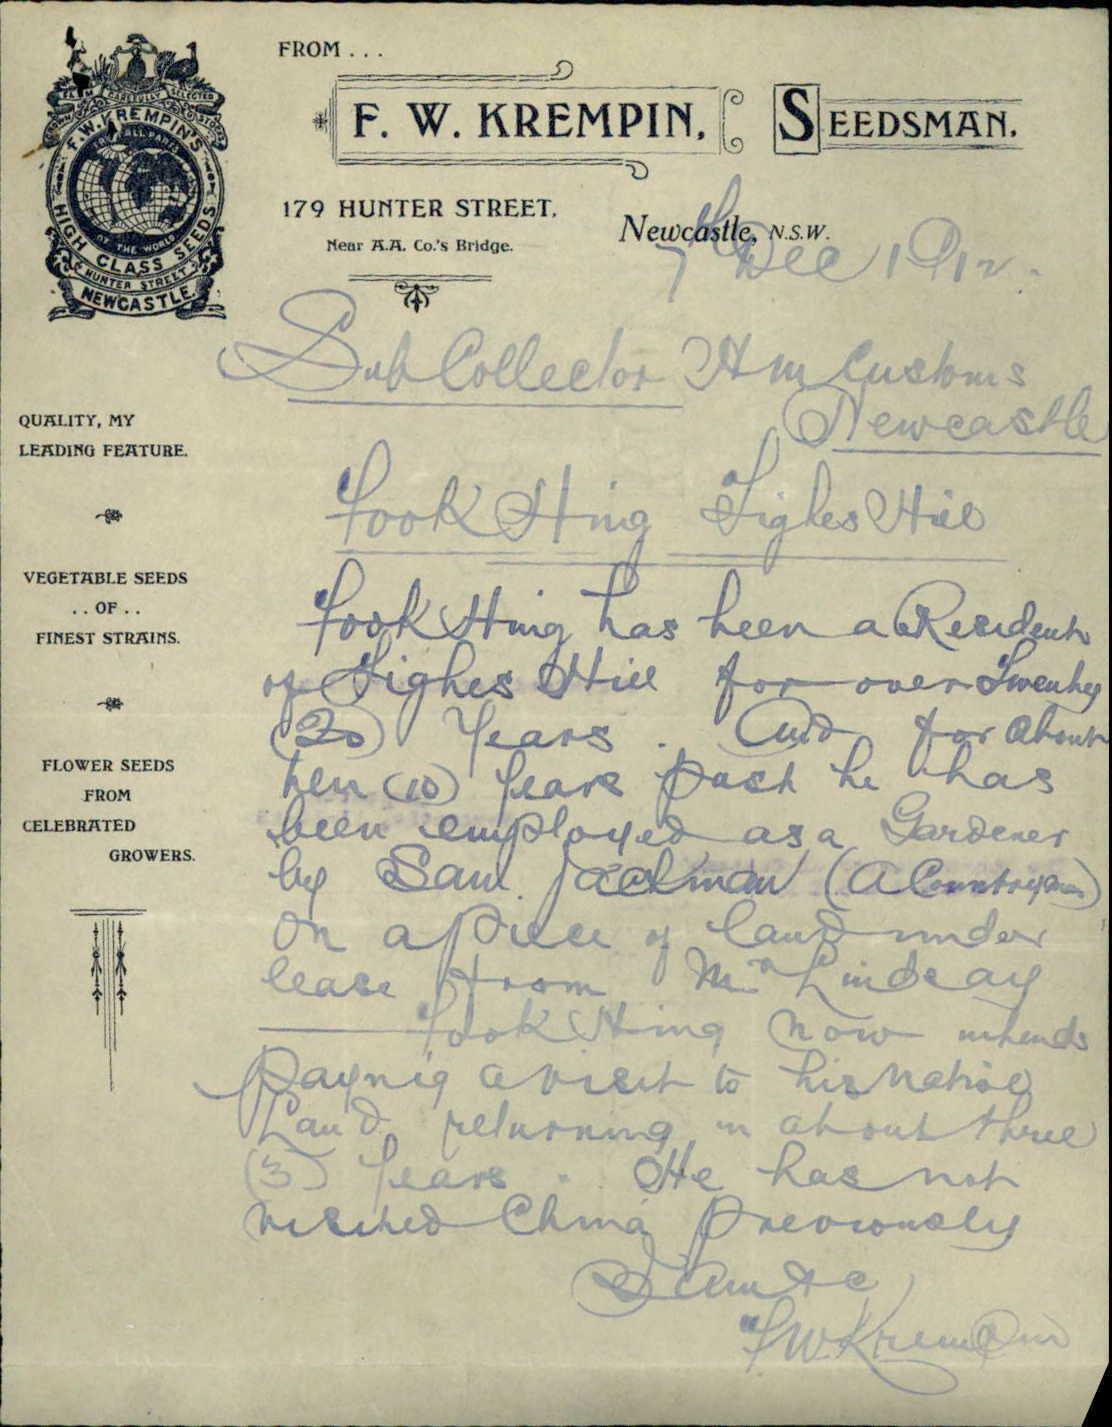 FROM . . .
F. W. KREMPIN, SEEDSMAN.
179 HUNTER STREET,
Near A.A. Co.'s Bridge.
Newcastle, N.S.W.
7th Dec 1912.
F. W. KREMPIN'S
HIGH CLASS SEEDS
HUNTER STREET
NEWCASTLE.
Sub Collector H m Customs
Newcastle
Fook Hing Tighes Hill
Fook Hing has been a Resident
of Tighes Hill for over Twenty
(20) Years. And for about
ten (10) Years past he has
been employed as a Gardener
by Sam Jackman (A Countryman)
on a piece of land under
lease from Mr Lindsay
Fook Hing now intends
paying a visit to his native
Land returning in about three
(3) Years. He has not
visited China previously
I am &c
F W Krempin
QUALITY, MY
LEADING FEATURE.
VEGETABLE SEEDS
. . OF . .
FINEST STRAINS.
FLOWER SEEDS
FROM
CELEBRATED
GROWERS.